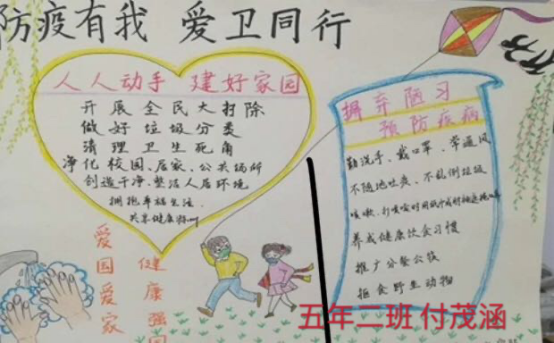 防疫有我 爱卫同行
人人动手 建好家园
开展全民大扫除
做好垃圾分类
清理卫生死角
净化校园、居家、公共场所
创造干净、整洁人居环境
拥抱幸福生活
共享健康
爱国爱家
健康强国
摒弃陋习
预防疾病
勤洗手、戴口罩、常通风
不随地吐痰、不乱倒垃圾
咳嗽、打喷嚏时用纸巾或肘袖遮掩口鼻
养成健康饮食习惯
推广分餐公筷
拒食野生动物
五年二班 付茂涵